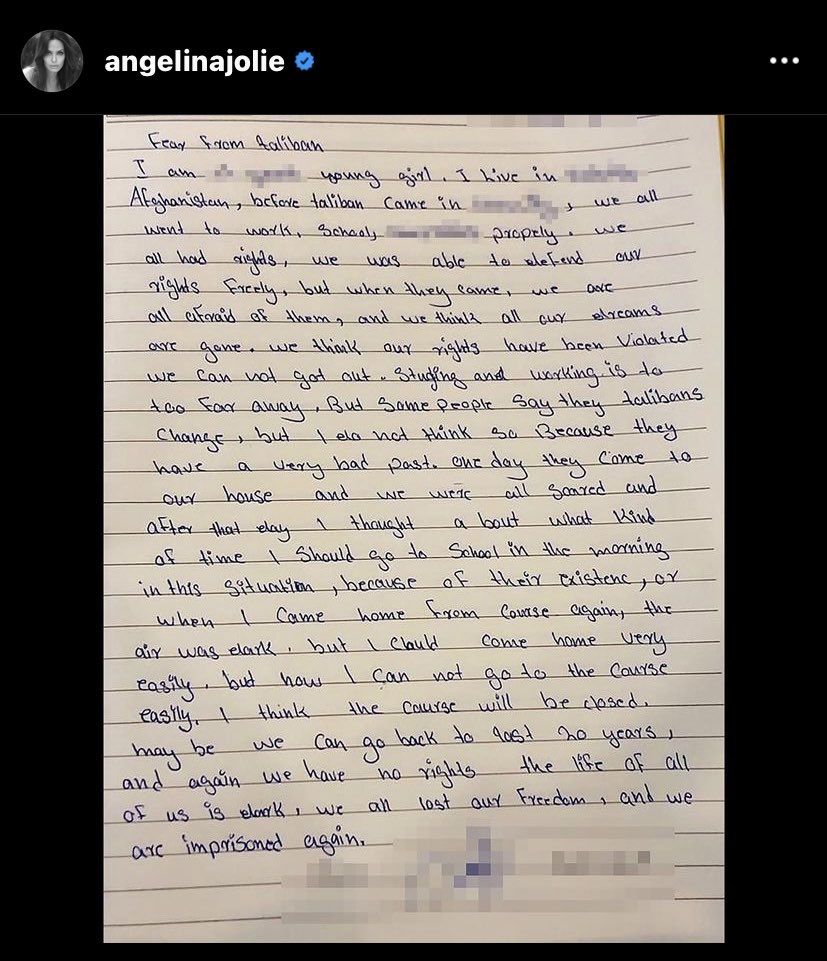 angelinajolie
Fear from taliban
I am young girl. I live in
Afghanistan, before taliban came in , we all
went to work, school, propely. we
all had rights, we was able to defend our
rights freely, but when they came, we are
all afraid of them, and we think all our dreams
are gone. we think our rights have been violated
we can not got out. Studing and working is to
too far away, But some people say they talibans
change, but I do not think so Because they
have a very bad past. one day they come to
our house and we were all scared and
after that day I thought a bout what kind
of time I should go to school in the morning
in this situation, because of their existenc, or
when I came home from course again, the
air was dark, but I could come home very
easily, but now I can not go to the course
easily. I think the course will be closed.
may be we can go back to last 20 years,
and again we have no rights the life of all
of us is dark, we all lost our freedom, and we
are imprisoned again.